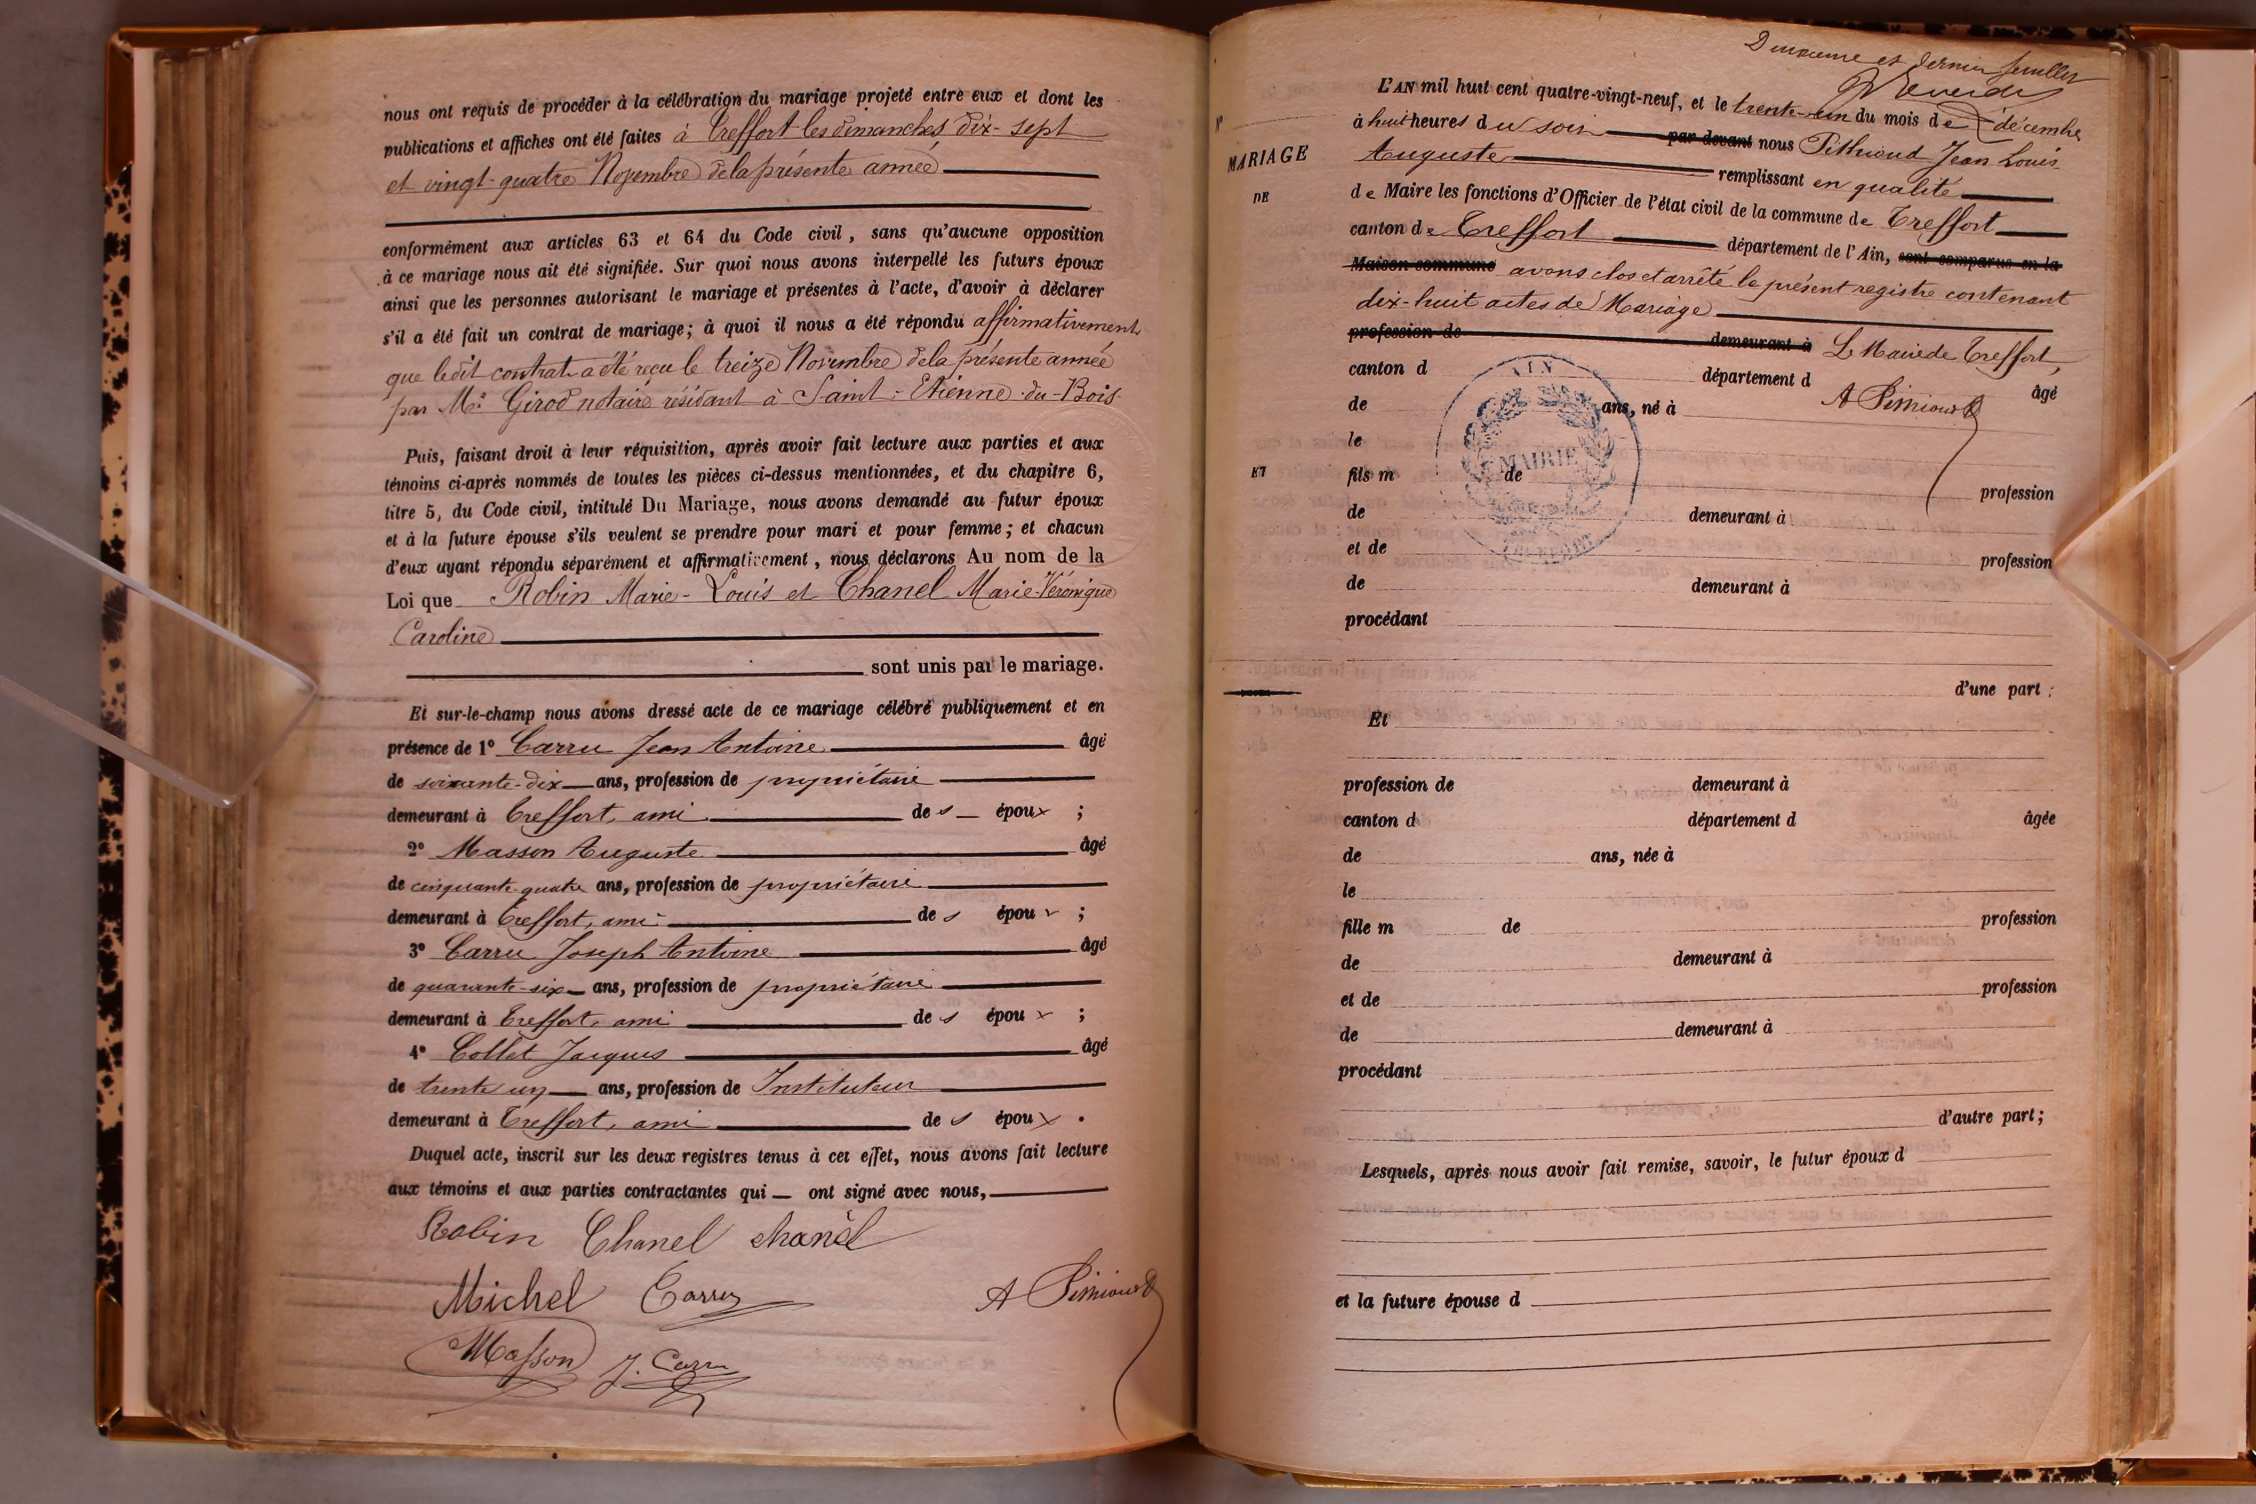 nous ont requis de procéder à la célébration du mariage projeté entre eux et dont les
publications et affiches ont été faites à Treffort les dimanches dix-sept
et vingt-quatre Novembre de la présente année
conformément aux articles 63 et 64 du Code civil, sans qu'aucune opposition
à ce mariage nous ait été signifiée. Sur quoi nous avons interpellé les futurs époux
ainsi que les personnes autorisant le mariage et présentes à l'acte, d'avoir à déclarer
s'il a été fait un contrat de mariage; à quoi il nous a été répondu affirmativement
que ledit contrat a été reçu le treize Novembre de la présente année
par Me Girod notaire résidant à Saint-Etienne-du-Bois
Puis, faisant droit à leur réquisition, après avoir fait lecture aux parties et aux
témoins ci-après nommés de toutes les pièces ci-dessus mentionnées, et du chapitre 6,
titre 5, du Code civil, intitulé Du Mariage, nous avons demandé au futur époux
et à la future épouse s'ils veulent se prendre pour mari et pour femme; et chacun
d'eux ayant répondu séparément et affirmativement, nous déclarons Au nom de la
Loi que Robin Marie-Louis et Chanel Marie-Véronique
Caroline
sont unis par le mariage.
Et sur-le-champ nous avons dressé acte de ce mariage célébré publiquement et en
présence de 1° Carru Jean Antoine âgé
de soixante-dix ans, profession de propriétaire
demeurant à Treffort, ami des époux ;
2° Masson Auguste âgé
de cinquante-quatre ans, profession de propriétaire
demeurant à Treffort, ami des époux ;
3° Carru Joseph Antoine âgé
de quarante-six ans, profession de propriétaire
demeurant à Treffort, ami des époux ;
4° Collet Jacques âgé
de trente un ans, profession de Instituteur
demeurant à Treffort, ami des époux .
Duquel acte, inscrit sur les deux registres tenus à cet effet, nous avons fait lecture
aux témoins et aux parties contractantes qui ont signé avec nous,
Robin Chanel chanel
Michel Carru
Masson J. Carru
Deuxième et dernier feuillet
N°
MARIAGE
DE
ET
L'AN mil huit cent quatre-vingt-neuf, et le trente-un du mois de décembre
à huit heures du soir par devant nous Jean Louis
Auguste remplissant en qualité
de Maire les fonctions d'Officier de l'état civil de la commune de Treffort
canton de Treffort département de l'Ain, sont comparus en la
Maison commune avons clos et arrêté le présent registre contenant
dix-huit actes de Mariage
profession de demeurant à Le Maire de Treffort,
canton d département d âgé
de ans, né à
le
AIN
MAIRIE
TREFFORT
fils m de profession
de demeurant à
et de profession
de demeurant à
procédant
d'une part ;
Et
profession de demeurant à
canton d département d âgée
de ans, née à
le
fille m de profession
de demeurant à
et de profession
de demeurant à
procédant
d'autre part;
Lesquels, après nous avoir fait remise, savoir, le futur époux d
et la future épouse d